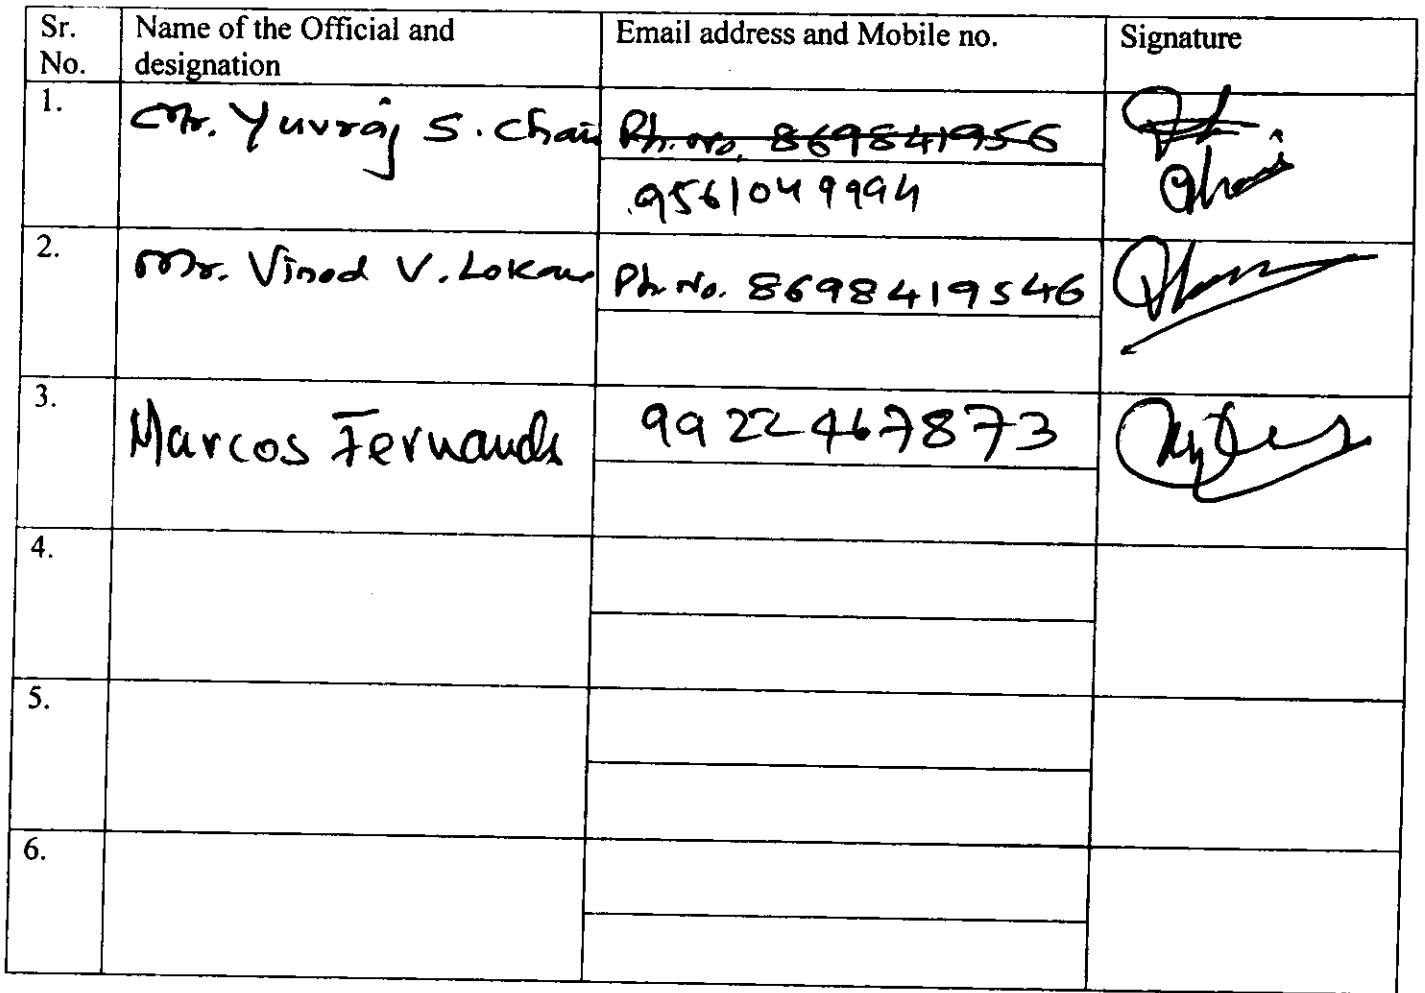 Sr. No. Name of the Official and designation Email address and Mobile no. Signature
1. Mr. Yuvraj S. Chari Ph. No. 869841956
9561049994
2. Mr. Vinod V. Lokare Ph. No. 8698419546
3. Marcos Fernands 9922467873
4.
5.
6.